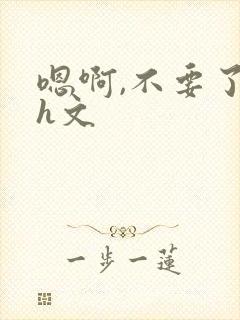 嗯啊,不要了
h文
一步一莲